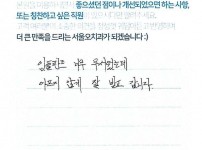 좋으셨던 점이나 개선되었으면 하는 사항,
또는 칭찬하고 싶은 직원
더 큰 만족을 드리는 서울오치과가 되겠습니다 :)
임플란트 너무 무서웠는데
아프지 않게 잘 받고 갑니다.